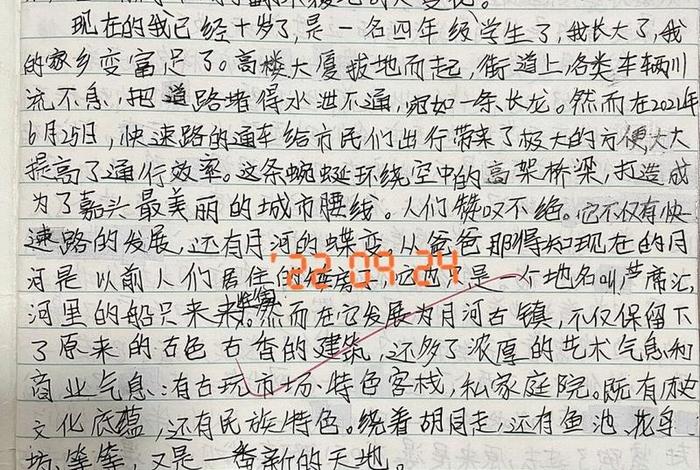 现在的我已经十岁了,是一名四年级学生了,我长大了,我
的家乡变富足了。高楼大厦拔地而起,街道上,各类车辆川
流不息,把道路堵得水泄不通,宛如一条长龙。然而在2021年
6月25日,快速路的通车给市民们出行带来了极大的方便,大大
提高了通行效率。这条蜿蜒环绕空中的高架桥梁,打造成
为了嘉头最美丽的城市腰线。人们赞叹不绝。它不仅有快
速路的发展,还有月河的蝶变。从爸爸那得知现在的月
河是以前人们居住的 是一个地名叫,芦席汇,
河里的船只来来 。然而在它发展为月河古镇,不仅保留下
了原来的古色古香的建筑,还多了浓厚的艺术气息和
商业气息:有古玩市场、特色客栈,私家庭院。既有
文化底蕴,还有民族特色。绕着胡同走,还有鱼池、花鸟
坊、等等,又是一番新的天地。
'22 09 24